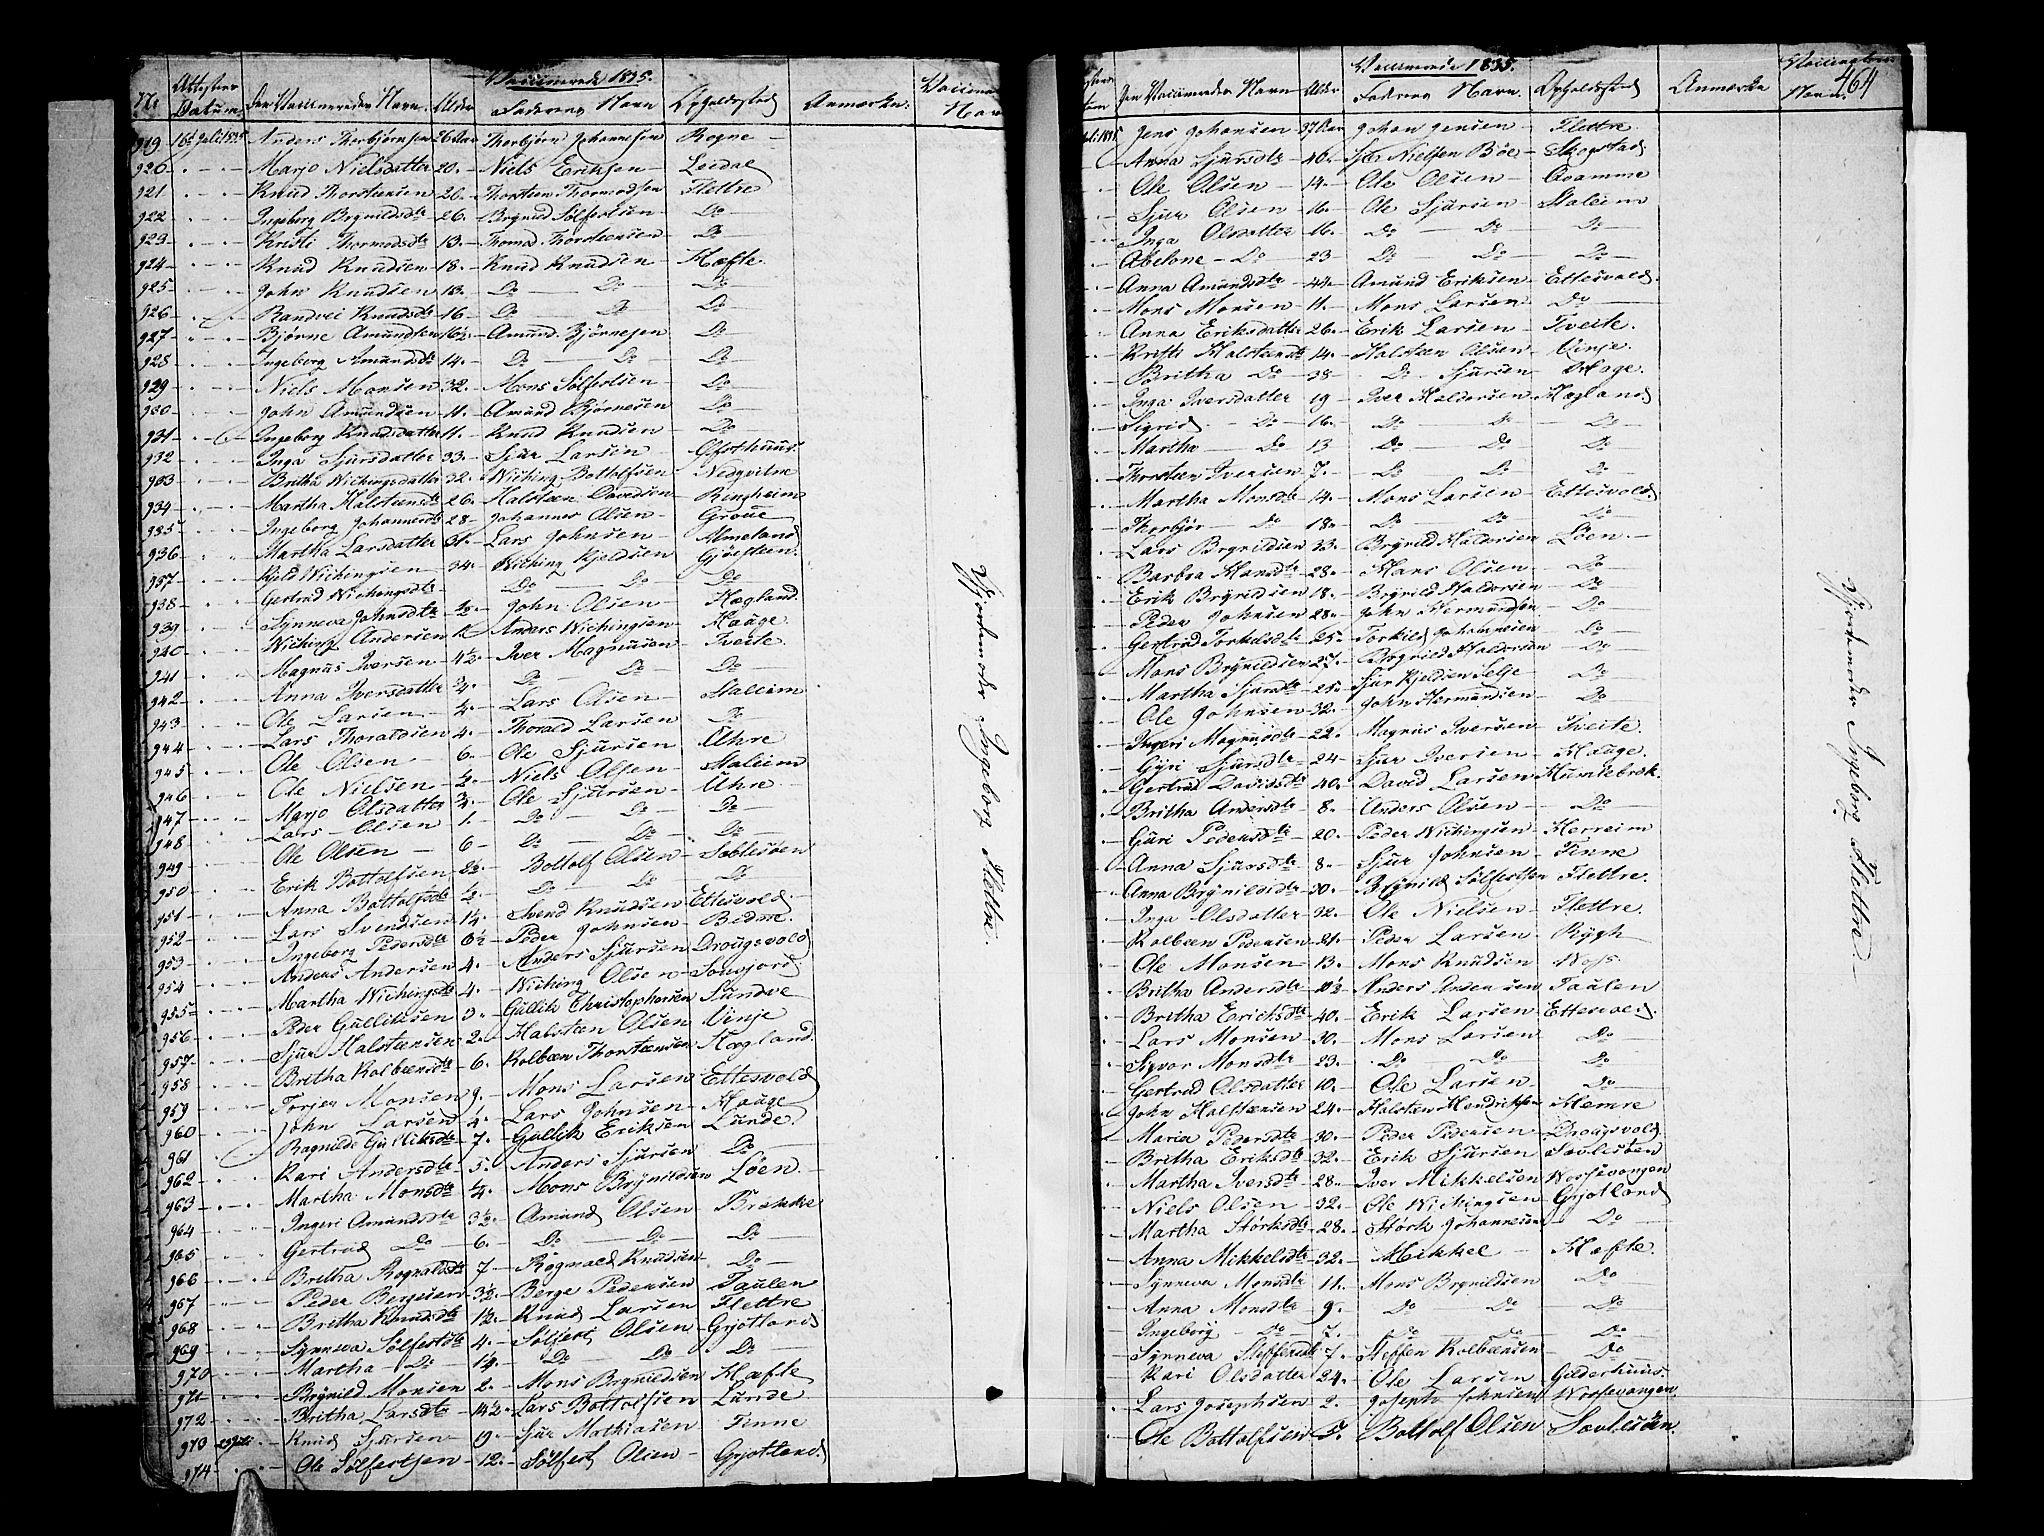 Vaccinerede 1835.
No Attestens Datum Den Vaccineredes Navn Alder Faderens Navn Opholdssted Anmærkn. Vaccina Nav
919 16de Juli 1835 Anders Thorbjørnsen 26 Aar Thorbjørn Johannesen Rogne
920 Marjo Nielsdatter 20. Niels Eriksen Leidal
921 Knud Thorsteensen 26. Thorsten Thormodsen Flettre
922 Ingeborg Brynildsdtr 26. Brynild Sølfestsen Do
923 Kristi Thormodsdtr 13. Thomod Thorsteensen Do
924 Knud Knudsen 18. Knud Knudsen Hæfte
925 John Knudsen 13. Do Do Do
926 Randvei Knudsdtr 16 Do Do Do
927 Bjørne Amundsen 16½. Amund Bjørnesen Do
928 Ingeborg Amundsdtr 14. Do Do Do
929 Niels Monsen 32. Mons Sølfestsen Do
930 John Amundsen 11. Amund Bjørnesen Do
931 Ingeborg Knudsdatter 11. Knud Knudsen Do
932 Inga Sjursdatter 33. Sjur Larsen Gjesthuus
933 Britha Wichingsdatter 32. Wiching Bottolfsen Nedqvitne
934 Martha Halsteensdtr 26. Halsteen Davidsen Ringheim
935 Ingeborg Johannesdtr 28 Johannes Olsen Groue
936 Martha Larsdatter 31. Lars Johnsen Almeland
937 Kjeld Wichingsen 34. Wiching Kjeldsen Gjøssteen
938 Gertrud Wichingsdtr Do Do Do
939 Synneva Johnsdtr John Olsen Hægland
940 Wiching Andersen Anders Wichingsen Hauge
941 Magnus Iversen 4½. Iver Magnusen Tveite
942 Anna Iversdatter Do Do Do
943 Ole Larsen Lars Olsen Staleim
944 Lars Thoraldsen 4. Thorald Larsen Do
945 Ole Olsen 6. Ole Sjursen Uhre
946 Ole Nielsen Niels Olsen Staleim
947 Marjo Olsdatter Ole Sjursen Uhre
948 Lars Olsen 1. Do Do Do
949 Ole Olsen 6 Do Do Do
950 Erik Bottolfsen 2½ Bottolf Olsen Sobleséen
951 Anna Bottolfsdtr Do Do Do
952 Lars Svendsen Svend Knudsen Ettesvold
953 Ingeborg Pedersdtr 6½ Peder Johnsen Bidne
954 Anders Andersen 4. Anders Sjursen Drougsvold
955 Martha Wichingsdtr 4. Wiching Olsen Songjord
956 Peder Gullikssen 3. Gullik Christophersen Sundve
957 Sjur Halsteensen 2. Halsteen Olsen Vinje
958 Britha Kolbeensdtr 6. Kolbeen Thorsteensen Hægland
959 Torjer Monsen 9. Mons Larsen Ettesvold
960 John Larsen Lars Johnsen Hauge
961 Ragnilde Gulliksdtr 7. Gullik Eriksen Lunde
962 Kari Andersdtr 5. Anders Sjursen Do
963 Martha Monsdtr Mons Brynildsen Løen
964 Ingeri Amundsdtr 3½. Amund Olsen Brække
965 Gertrud Do 6. Do Do Do
966 Britha Rognaldsdtr 7 Rognald Knudsen Do
967 Peder Bergesen 3½ Berge Pedersen Taulen
968 Britha Knudsdtr Knud Larsen Flettre
969 Synneva Sølfestsdtr 4. Sølfest Olsen Grjotland
970 Martha Do Do Do Do
971 Brynild Monsen 2. Mons Brynildsen Hæfte
972 Britha Larsdtr Lars Bottolfsen Lunde
973 Knud Sjursen 9. Sjur Mathiasen Finne
974 Ole Sølfestsen 12. Sølfest Olsen Grjotland
Gjordemoder Ingeborg Flettre.
Vaccinerede 1835.
464
Den Vaccineredes Navn Alder Faderens Navn Opholdssted Anmærkn Vaccinateurens Navn
Juli 1835 Jens Johansen 37 Aar Johan Jensen Flettre
Anna Sjursdtr 40. Sjr Nielsen Bøe Skogstad
Ole Olsen 14. Ole Olsen Qvamme
Sjur Olsen 16. Ole Sjursen Staleim
Inga Olsdatter 16. Do Do Do
Abelone Do 23 Do Do Do
Anna Amundsdtr 44. Amund Eriksen Ettesvold
Mons Monsen 11. Mons Larsen Do
Anna Eriksdatter 26. Erik Larsen Tveite
Kristi Halsteensdtr 14. Halsteen Olsen Vinje
Britha Do 38 Do Sjursen Hage
Inga Iversdatter 19 Iver Haldorsen Hægland
Sigrid Do 16. Do Do Do
Martha Do 13 Do Do Do
Thorsteen Iversen 7. Do Do Do
Martha Monsdtr 14. Mons Larsen Ettesvold
Thorbjør Do 18. Do Do Do
Lars Brynildsen 33. Brynild Haldorsen Løen
Barbra Hansdtr 28. Hans Olsen Do
Erik Brynildsen 18. Brynild Haldorsen Do
Peder Johnsen 28. John Hermundsen Do
Gertrud Torkildsdtr 25. Torkild Johannesen Do
Mons Brynildsen 27. Brynild Haldorsen Do
Martha Sjursdtr 25. Sjur Kjeldsen Selje Do
Ole Johnsen 32. John Hermundsen Do
Ingeri Magnusdtr 22. Magnus Iversen Tveite
Gyri Sjursdtr 24 Sjur Iversen Hauge
Gertrud Davidsdtr 40. David Larsen Humlebrek
Britha Andersdtr 8. Anders Olsen Do
Guri Pedersdtr 20. Peder Wichingsen Herreim
Anna Sjursdtr 8. Sjur Johnsen Finne
Anna Brynildsdtr 30. Brynild Sølfestsen Flettre
Inga Olsdatter 32. Ole Nielsen Flettre
Kolbeen Pedersen 21. Peder Larsen Rygh
Ole Monsen 13. Mons Knudsen Woss
Britha Andersdtr Anders Andersen Taulen
Britha Erichsdtr 40. Erik Larsen Ettesvold
Lars Monsen 30. Mons Larsen Do
Sygvor Monsdtr 23. Do Do Do
Gertrud Olsdatter 10. Ole Larsen Do
John Halsteensen 24. Halsteen Hendriksen Hemre
Maria Pedersdtr 30. Peder Pedersen Drougsvold
Britha Eriksdtr 32. Erik Sjursen Sovleséen
Martha Iversdtr 28. Iver Mikkelsen Wossevangen
Niels Olsen 32. Ole Wichingsen Grjotland
Martha Størksdtr 28. Størk Johannesen Do
Anna Mikkelsdtr 32. Mikkel Hæfte
Synneva Monsdtr 11. Mons Brynildsen Do
Anna Monsdtr 9. Do Do Do
Ingeborg Do 7. Do Do Do
Synneva Steffensdtr 7. Steffen Kolbeensen Do
Kari Olsdatter 24. Ole Larsen Gilderhuus
Lars Josephsen 2. Joseph Johnsen Wossevangen
Ole Bottolfsen 5. Bottolf Olsen Sovleséen
Gjordemoder Ingeborg Flettre